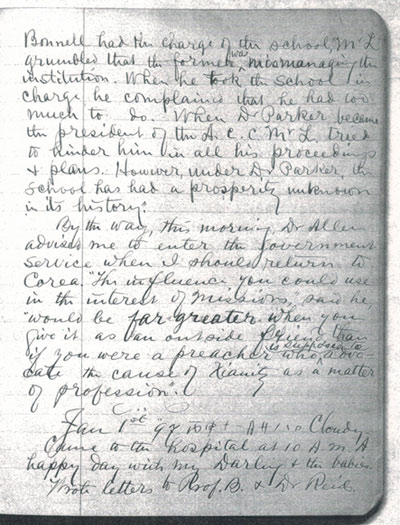 Bonnell had the charge of the school, Mr L
grumbled that the former was mismanaging the
institution. When he took the school in
charge he complained that he had too
much to do. When Dr Parker became
the president of the A. C. C. Mr L. tried
to hinder him in all his proceedings
& plans. However, under Dr Parker, the
school has had a prosperity unknown
in its history."
By the way, this morning Dr Allen
advised me to enter the government
service when I should return to
Corea. "The influence you could use
in the interest of missions," said he,
"would be far greater when you
give it as an outside friend than
if you were a preacher who is supposed to advo-
cate the cause of Xianity as a matter
of profession".
Jan 1st Cloudy.
Came to the hospital at 10 A.M. A
happy day with my Darling & the babies.
Wrote letters to Prof. B. & Dr Reid.